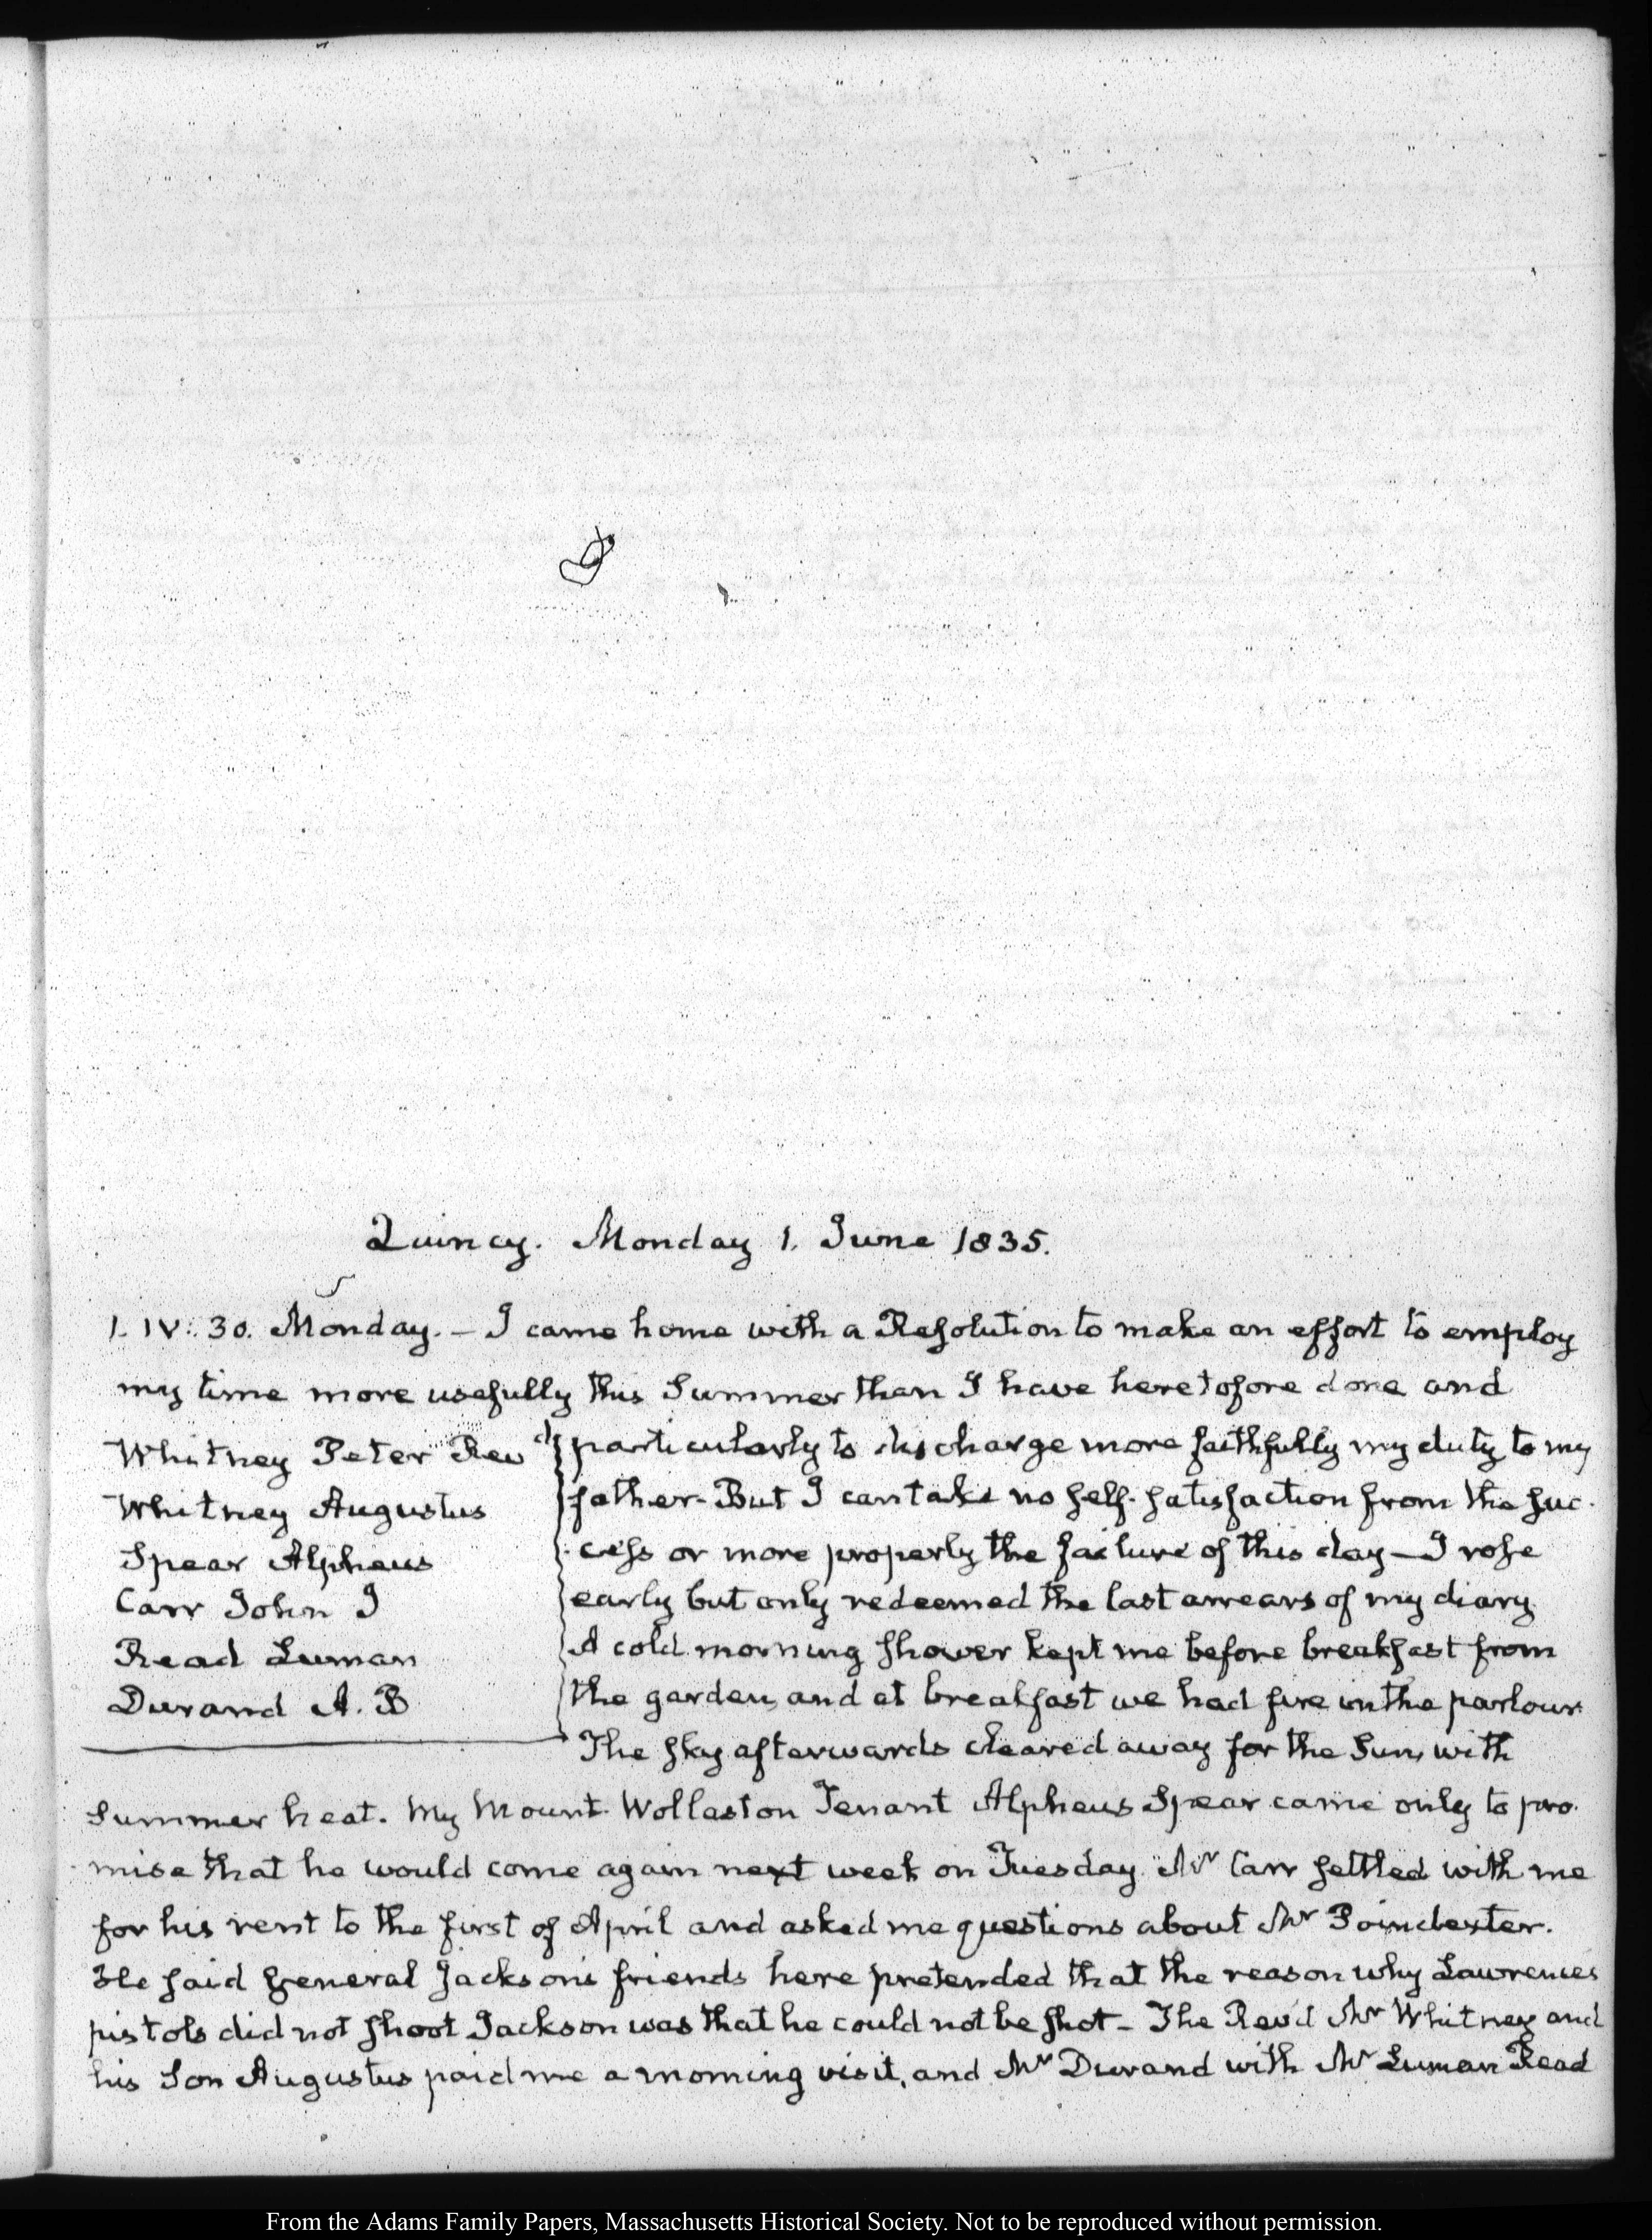 Quincy. Monday 1. June 1835.
1. IV: 30. Monday. — I came home with a Resolution to make an effort to employ
my time more usefully this Summer than I have heretofore done and
Whitney Peter Revd
Whitney Augustus
Spear Alpheus
Carr John J
Read Luman
Durand A. B
particularly to discharge more faithfully my duty to my
father - But I can take no self-satisfaction from the suc-
cess or more properly the failure of this day — I rose
early but only redeemed the last arrears of my diary
A cold morning shower kept me before breakfast from
the garden, and at breakfast we had fire in the parlour
The sky afterwards cleared away for the Sun, with
Summer heat. My Mount-Wollaston Tenant Alpheus Spear came only to pro-
mise that he would come again next week on Tuesday. Mr Carr settled with me
for his rent to the first of April and asked me questions about Mr Poindexter.
He said General Jackson's friends here pretended that the reason why Lawrences
pistols did not shoot Jackson was that he could not be shot - The Rev'd Mr Whitney and
his Son Augustus paid me a morning visit, and Mr Durand with Mr Luman Read
From the Adams Family Papers, Massachusetts Historical Society. Not to be reproduced without permission.